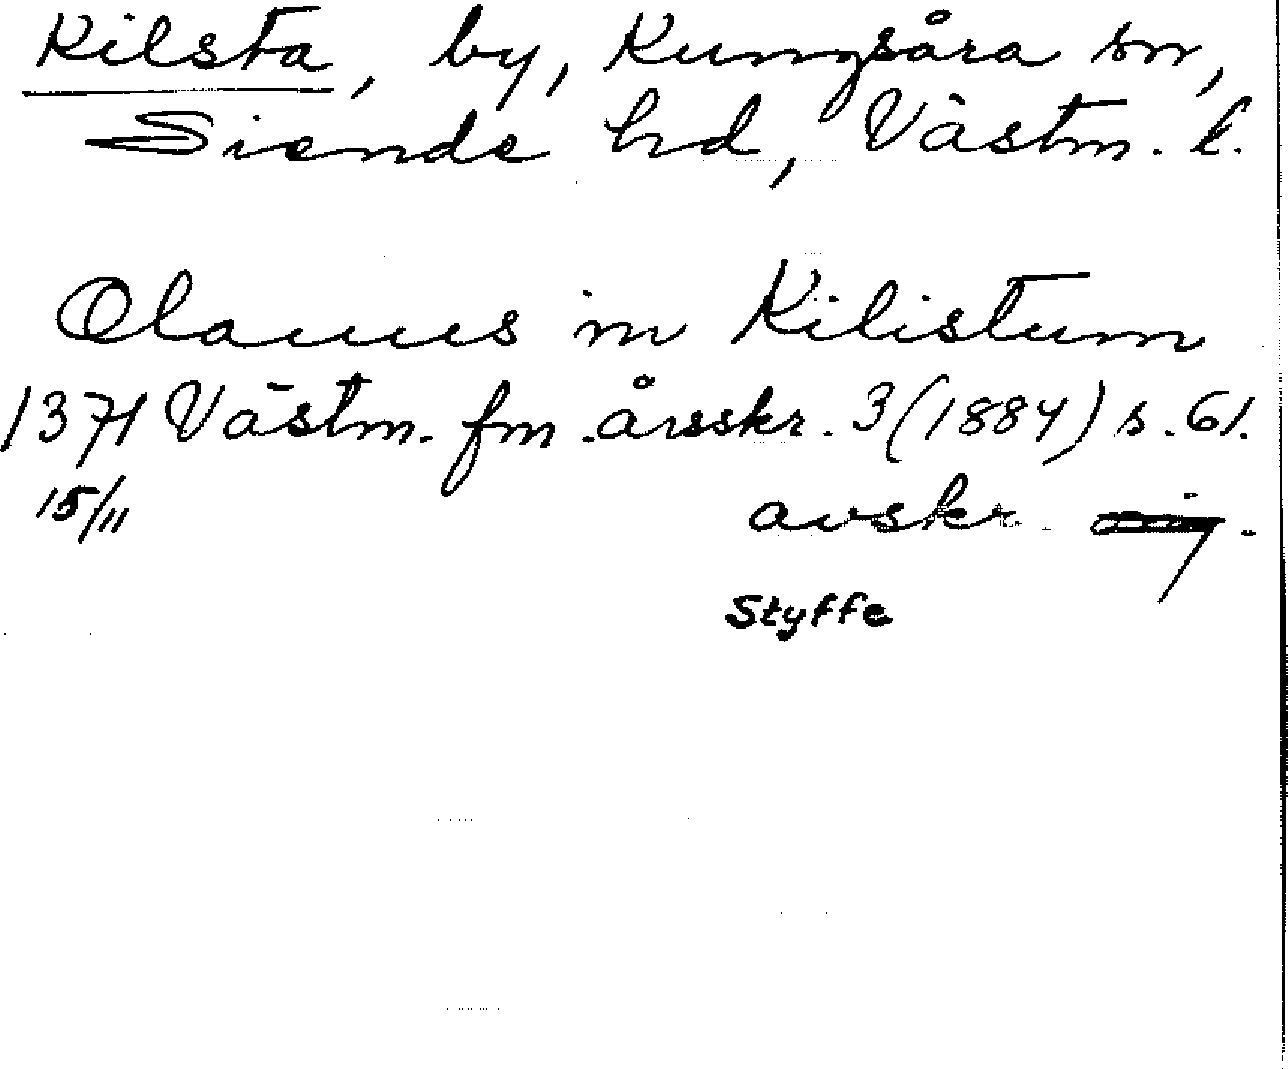 Kilsta, by, Kungsåra sn,
Siende hd, Västm. l.
Olauus in Kilistum
1371 Västm. fm. årsskr. 3 (1884) s. 61.
15/11 avskr.
Styffe